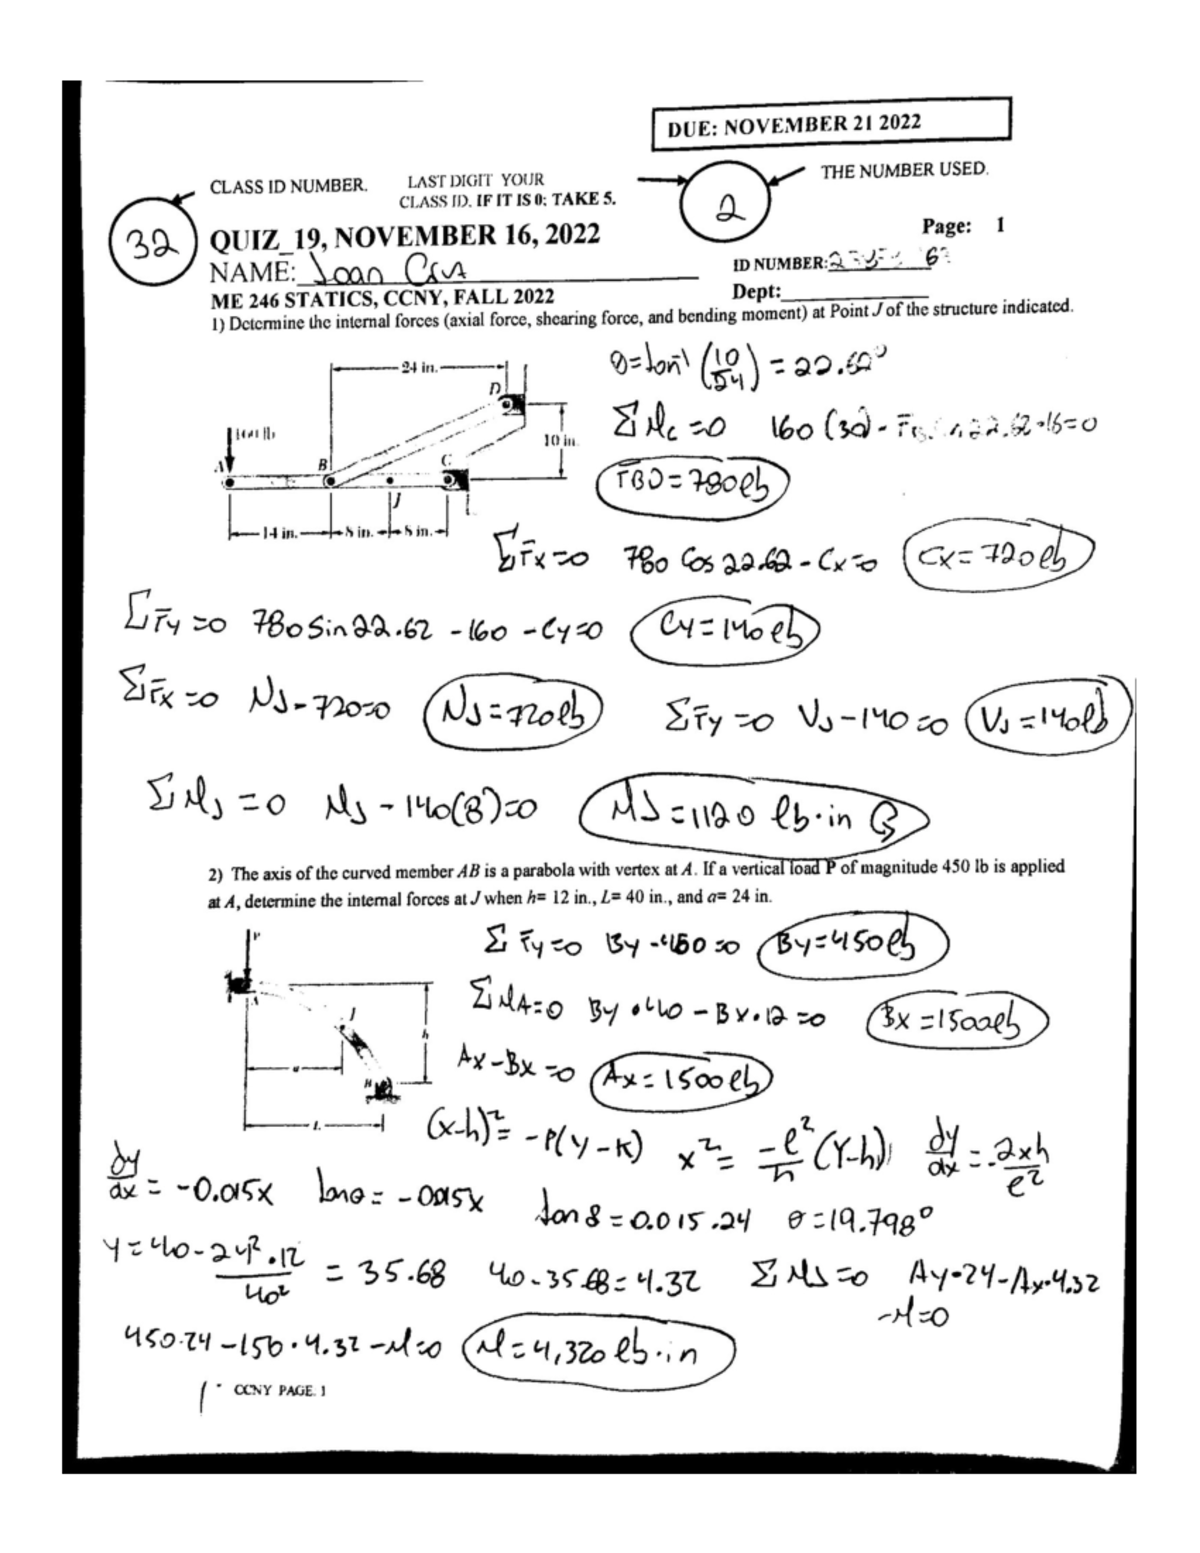 DUE: NOVEMBER 21 2022
CLASS ID NUMBER. LAST DIGIT YOUR THE NUMBER USED.
CLASS ID. IF IT IS 0; TAKE 5.
32 2
QUIZ_19, NOVEMBER 16, 2022 Page: 1
NAME: Joan ID NUMBER:
ME 246 STATICS, CCNY, FALL 2022 Dept:
1) Determine the internal forces (axial force, shearing force, and bending moment) at Point J of the structure indicated.
24 in.
D
160 lb
10 in.
A B C
J
14 in. 8 in. 8 in.
θ=tan⁻¹(10/24) = 22.62°
ΣMc=0 160(30)- 22.62·16=0
FBD=780lb
ΣFx=0 780 Cos 22.62 - Cx=0 Cx=720lb
ΣFy=0 780 Sin 22.62 -160 -Cy=0 Cy=140lb
ΣFx=0 NJ-720=0 NJ=720lb ΣFy=0 VJ-140=0 VJ=140lb
ΣMJ=0 MJ-140(8)=0 MJ=1120 lb·in
2) The axis of the curved member AB is a parabola with vertex at A. If a vertical load P of magnitude 450 lb is applied
at A, determine the internal forces at J when h= 12 in., L= 40 in., and a= 24 in.
P
A
J
h
a
B
L
ΣFy=0 By-450=0 By=450lb
ΣMA=0 By·40-Bx·12=0 Bx=1500lb
Ax-Bx=0 Ax=1500lb
(x-h)²=-P(y-K) x²=-l²/h(Y-h) dy/dx=-2xh/l²
dy/dx=-0.015x tanθ=-0.015x tanθ=0.015·24 θ=19.798°
Y=40-24²·12/40²=35.68 40-35.68=4.32 ΣMJ=0 Ay·24-Ax·4.32
-M=0
450·24-150·4.32-M=0 M=4,320 lb·in
CCNY PAGE. 1